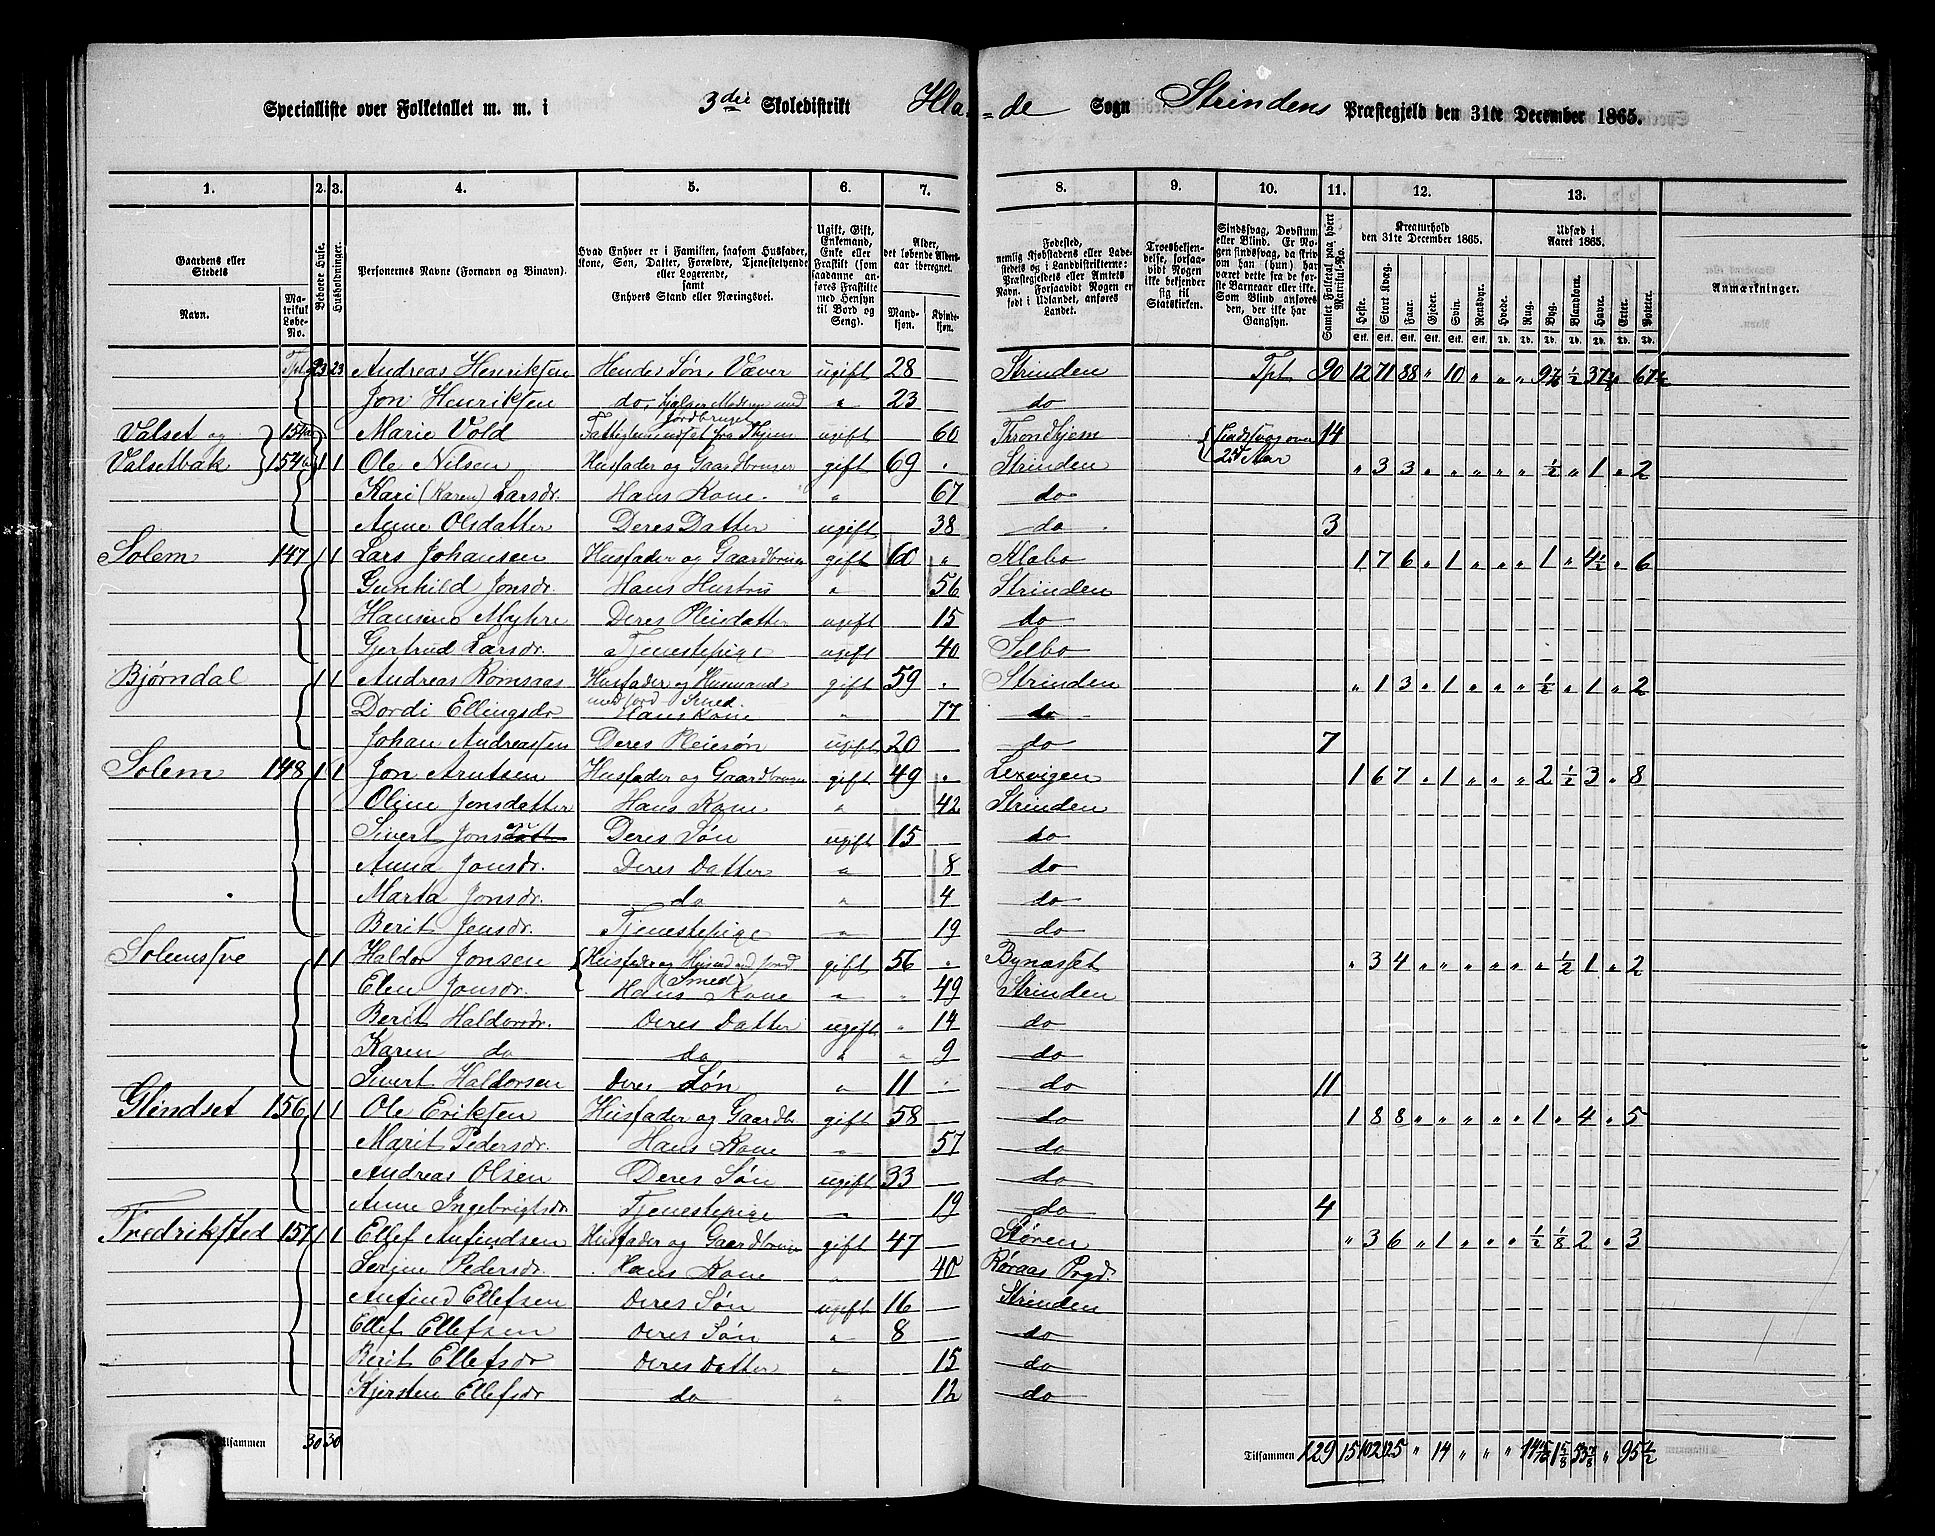 Specialliste over Folketallet m. m. i 3die Skoledistrikt Hlade Sogn Strindens Præstegjeld den 31te December 1865.
1. 2. 3. 4. 5. 6. 7. 8. 9. 10. 11. 12. 13.
Gaardens eller Stedets Navn. Matrikul Løbe-No. Beboede Huse. Husholdninger. Personernes Navne (Fornavn og Binavn). Hvad Enhver er i Familien, saasom Husfader, Kone, Søn, Datter, Forældre, Tjenestetyende eller Logerende, samt Enhvers Stand eller Næringsvei. Ugift, Gift, Enkemand, Enke eller Fraskilt (som saadanne anføres Fraskilte med Hensyn til Bord og Seng). Alder, det løbende Aldersaar iberegnet. Mandkjøn. Kvindekjøn. Fødested, nemlig Kjøbstadens eller Ladestedets og i Landdistrikterne: Præstegjeldets eller Amtets Navn. Forsaavidt Nogen er født i Udlandet, anføres Landet. Troesbekjendelse, forsaavidt Nogen ikke bekjender sig til Statskirken. Sindssvag, Døvstum eller Blind. Er Nogen sindssvag, da skrives om han (hun) har været dette fra de første Barneaar eller ikke. Som Blind anføres den, der ikke har Gangsyn. Samlet Folketal paa hvert Matrikul-No. Kreaturhold den 31te December 1865. Heste. Stort Kvæg. Faar. Gjeder. Svin. Rensdyr. Udsæd i Aaret 1865. Hvede. Rug. Byg. Blandkorn. Havre. Erter. Poteter. Anmærkninger.
Tpt 23 23 Andreas Henriksen Hendes Søn, Væver ugift 28 Strinden Tpt 90 12 71 88 " 10 " " "
Jon Henriksen do, hjelper Moderen med Jordbruget " 23 do
Valset og 154a Marie Vold ugift 60 Throndhjem 14
Valsetbak 154b 1 1 Ole Nilsen Husfader og Gaardbruger gift 69 " Strinden " 3 3 " " " " " 1/2 " 1 " 2
Kari (Karen) Larsdr. Hans Kone " 67 do
Anne Olsdatter Deres Datter ugift 38 do 3
Solem 147 1 1 Lars Johansen Husfader og Gaardbruger gift 60 " Klæbo 1 7 6 " 1 " " " 1 " 4 1/2 " 6
Gunhild Jonsdr. Hans Hustru " 56 Strinden
Hansine Myhre Deres Pleiedatter ugift 15 do
Gjertrud Larsdr. Tjenestepige ugift 40 Selbo
Bjørndal 1 1 Andreas Romsaas Husfader og Husmand med Jord Smed. gift 59 " Strinden " 1 3 " 1 " " " 1/2 " 1 " 2
Dordi Ellingsdr Hans Kone " 77 do
Johan Andreassen Deres Pleiesøn ugift 20 do 7
Solem 148 1 1 Jon Arntsen Husfader og Gaardbruger gift 49 " Lexvigen 1 6 7 " 1 " " " 2 1/2 3 " 8
Oline Jonsdatter Hans Kone " 42 Strinden
Sivert Jonsen Deres Søn ugift 15 do
Anna Jonsdr. Deres Datter " 8 do
Marta Jonsdr. do " 4 do
Berit Jensdr. Tjenestepige " 19 do
Solems 1 1 Haldor Jonsen Husfader og Husmd med Jord (Smed) gift 56 " Bynæsset " 3 4 " " " " " " 1/2 1 " 2
Elen Jonsdr. Hans Kone " " 49 Strinden
Berit Haldorsdr. Deres Datter ugift " 14 do
Karen do do " " 9 do
Sivert Haldorsen Deres Søn " 11 " do 11
Glindset 156 1 1 Ole Eriksen Husfader og Gaardbr gift 58 do 1 8 8 " " " " " 1 " 4 " 5
Marit Pedersdr. Hans Kone " 57 do
Andreas Olsen Deres Søn ugift 33 do
Anne Ingebrigtsdr. Tjenestepige " 19 do 4
Fredriksted 157 1 1 Ellef Anfindsen Husfader og Gaardbruger gift 47 Støren " 3 6 " 1 " " " 1/2 1/8 2 " 3
Pedersdr. Hans Kone " 40 Røraas Prgd.
Anfind Ellefsen Deres Søn ugift 16 Strinden
Ellef Ellefsen Deres Søn " 8 do
Berit Ellefsdr Deres Datter " 15 do
Kjersten Ellefsdr do " 12 do
Tilsammen 30 30 Tilsammen 129 15 102 125 " 14 " " "